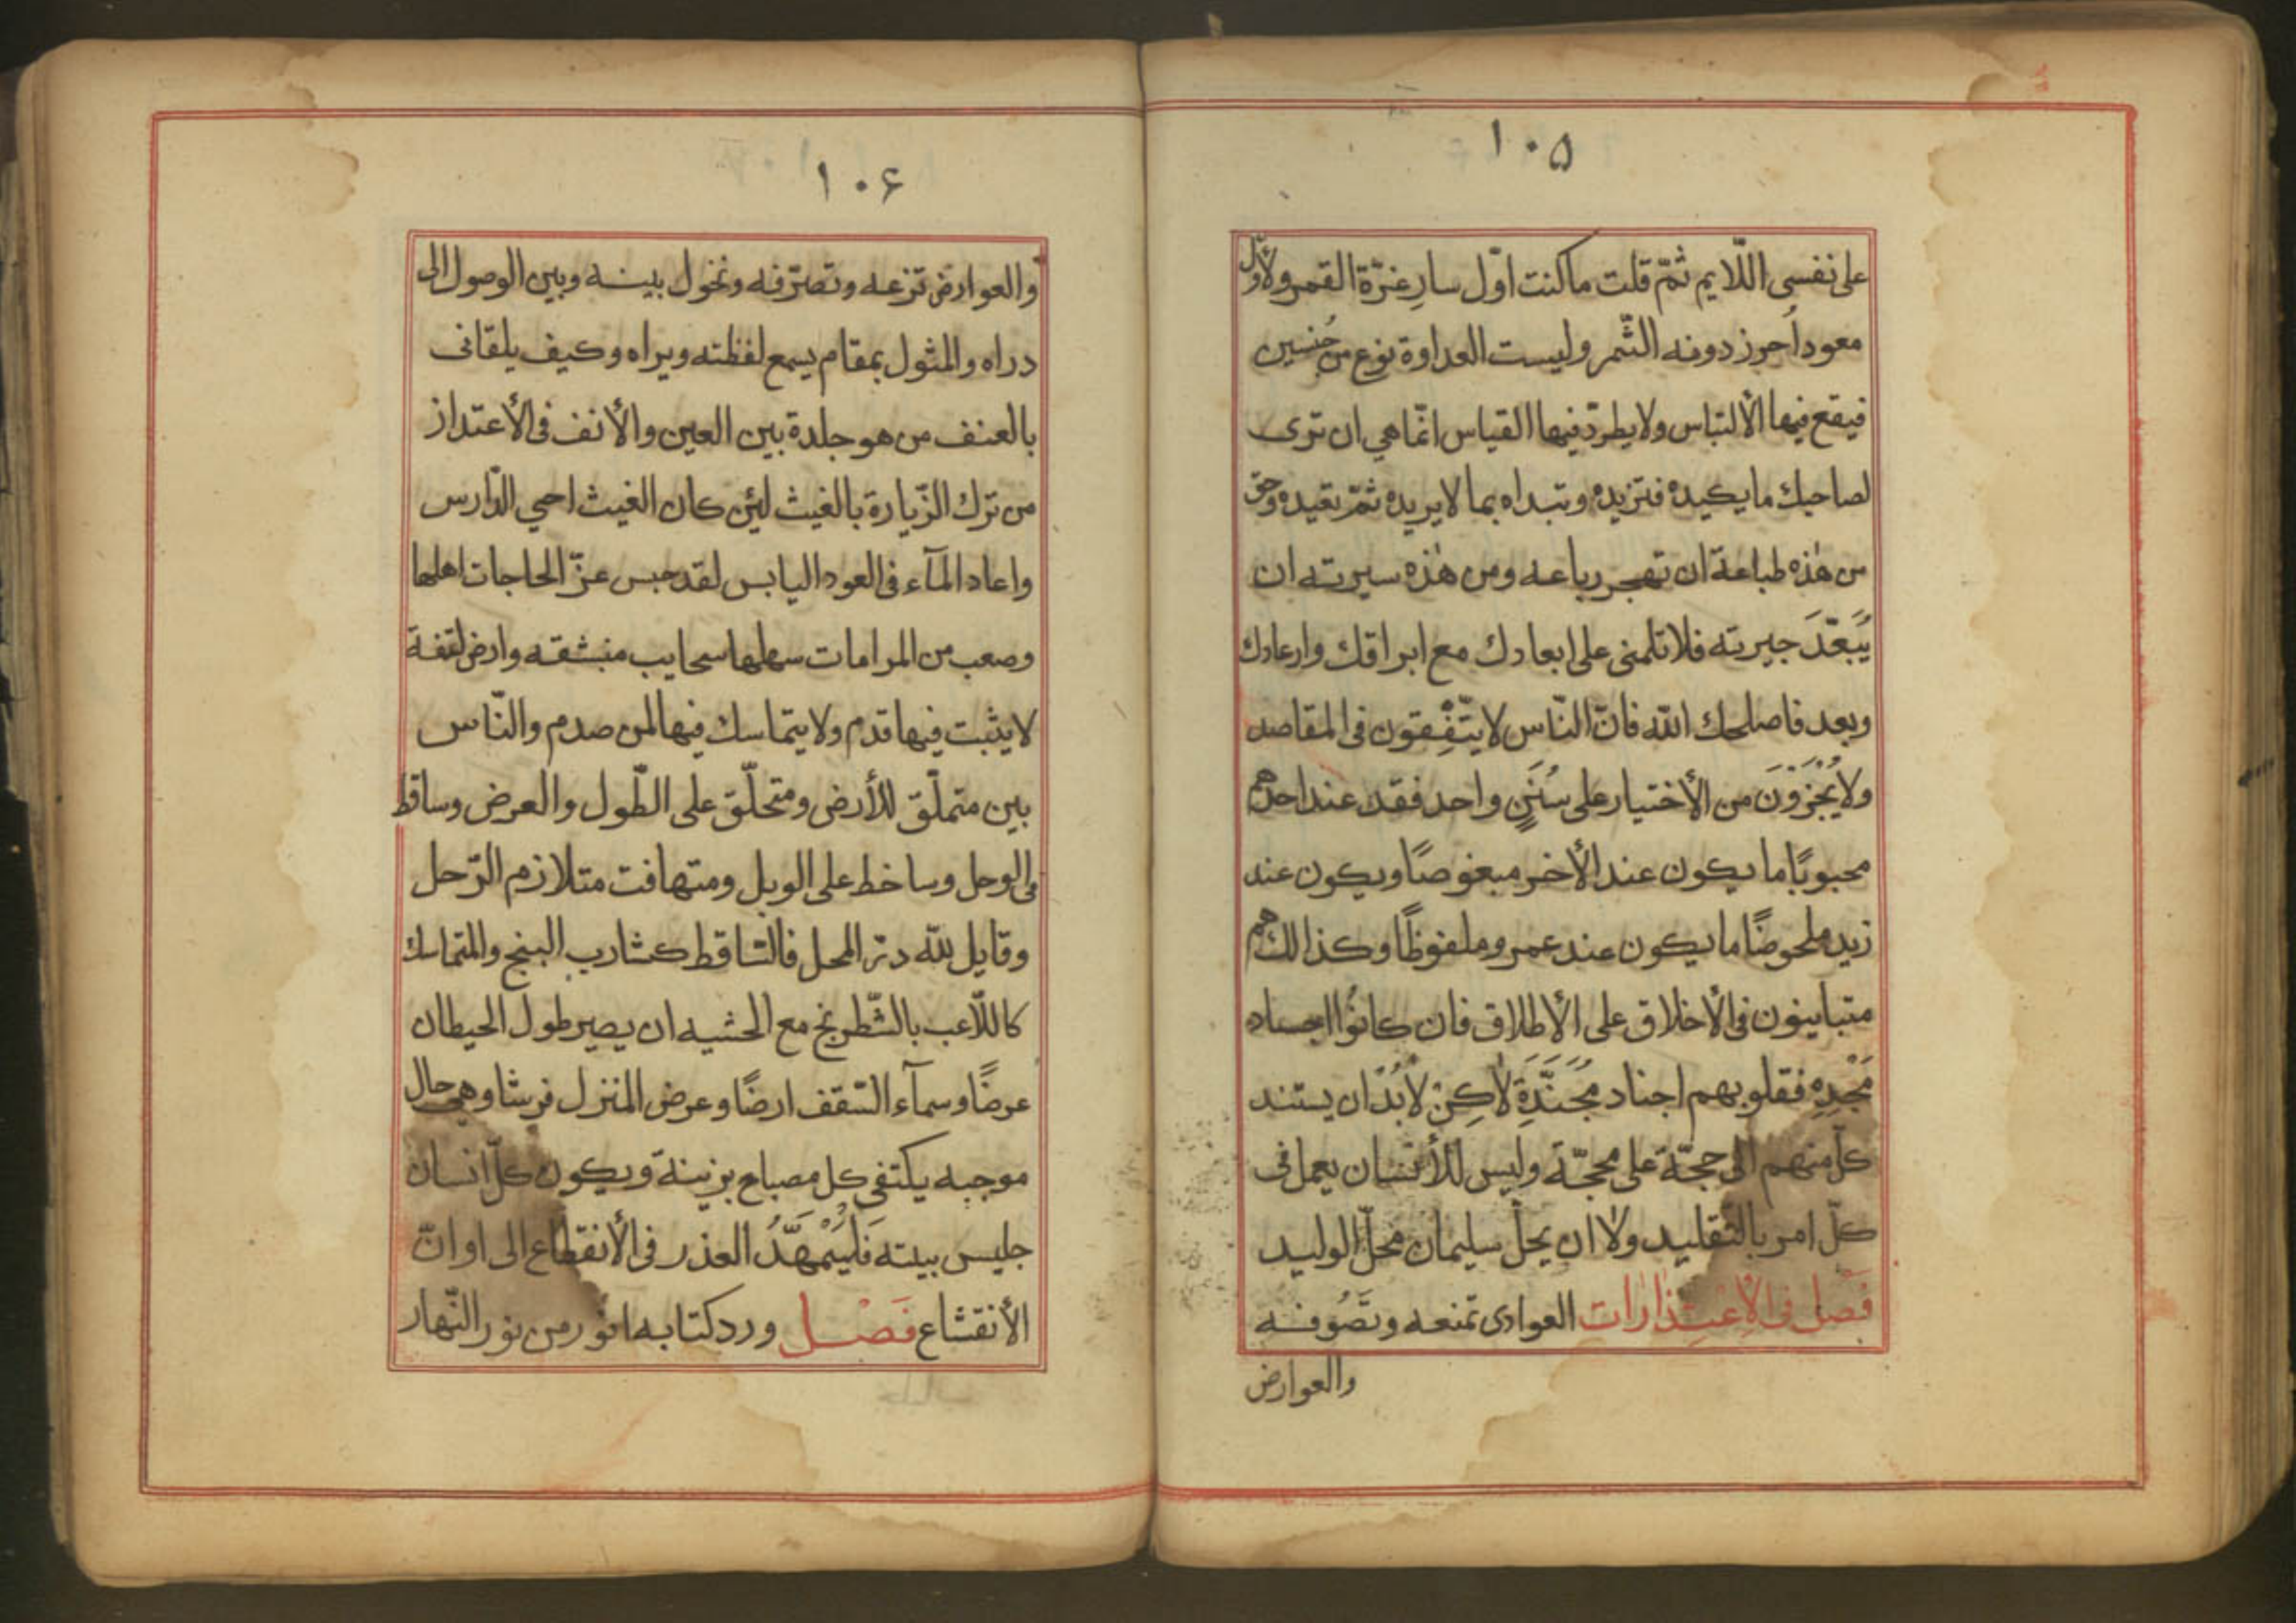 ١٠٥
على نفسى اللّايم ثمّ قلت ماكنت اوّل سارٍ غرّة القمر ولا اوّل
معود اُحرز دونه الثّمر وليست العداوة نوع من جنسين
فيقع فيها الألتباس ولا يطردّ فيها القياس انّما هى ان ترى
لصاحبك ما يكيده فتزيده وتبداه بما لا يريده ثمّ تعيده وحق
من هٰذه طباعة ان تهجر رباعه ومن هٰذه سيرته ان
يُبَعَّدَ جيرته فلا تلمنى على ابعادك مع ابراقك وارعادك
وبعد فاصلحك الله فانّ النّاس لا يتّفِقون فى المقاصد
ولا يُجْزَوْنَ من الأختيار على سُنَنٍ واحد فقد عند احدهم
محبوبًا ما يكون عند الأخر مبغوضًا ويكون عند
زيد ملحوضًا ما يكون عند عمرو ملفوظًا وكذالك هم
متباينون فى الأخلاق على الأطلاق فان كانُوا اجساد
مَجْدِهٍ فقلوبهم اجناد مُجَنَّدَةٍ لٰاكِنْ لاٰبُدّ ان يستند
كلّ منهم الى حجّة على محجّة وليس للأنسان يعمل فى
كلّ امر بالتّقليد ولا ان يحلّ سليمان محلّ الوليد
فَصل فى الإعتِذارات العوادى تمنعه وتَصُوفه
والعوارض
١٠۶
والعوارض تزعه وتصرّفه وتحول بينه وبين الوصول الى
دراه والمثول بمقام يسمع لفظته ويراه وكيف يلقانى
بالعنف من هو جلدة بين العين والأنف فى الأعتذار
من ترك الزّيارة بالغيث لئن كان الغيث احيي الدّارس
واعاد المآء فى العود اليابس لقد حبس عن الحاجات اهلها
وصعب من المرامات سهلها سحايب منبثقه وارض لتفة
لا يثبت فيها قدم ولا يتماسك فيها لمن صدم والنّاس
بين متملّق للأرض ومتحلّق على الطّول والعرض وساقط
فى الوحل وساخط على الوبل ومتهافت متلازم الرّحل
وقايل لله درّ المحل فالتساقط كشارب البنج والمتماسك
كاللّاعب بالشّطرنج مع الخشيه ان يصير طول الحيطان
عرضًا وسمآء السّقف ارضًا وعرض المنزل فرشا وهى حال
موجبه يكتفى كل مصباح بزينة ويكون كلّ انسان
جليس بيته فَليُمْهَّدُ العذر فى الأنقطاع الى اوانّ
الأنقشاع فَصْل ورد كتابه انور من نور النّهار